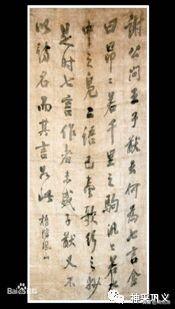 谢公问王子猷云何为七言答
曰昂昂若千里之驹汎汎若水
中之凫二语已尽歌行之妙
是时七言作者未盛子猷又不
以诗名而其言如此
神采巩义